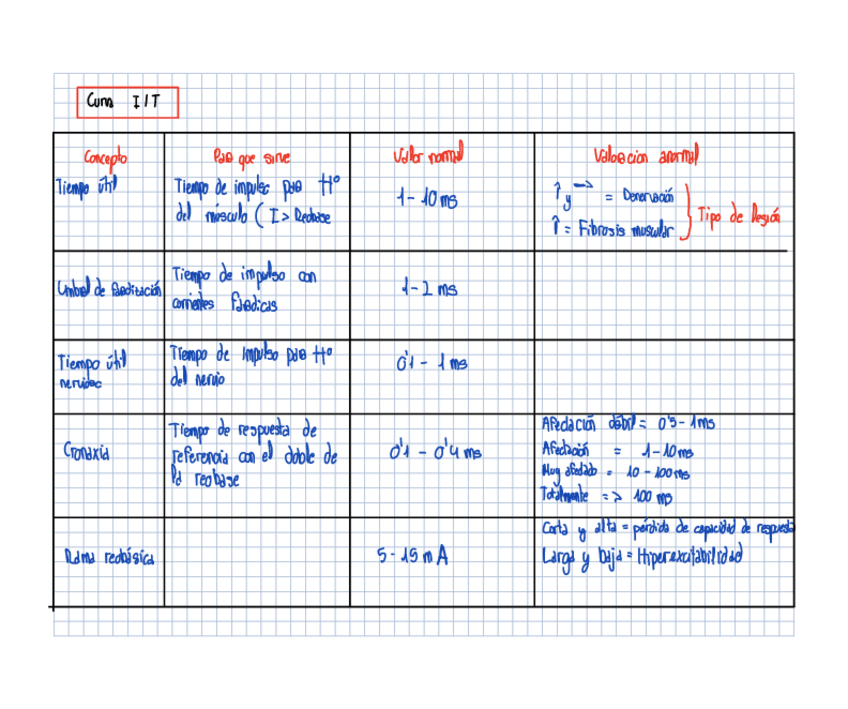 Curva I/T
Concepto
Para que sirve
Valor normal
Valoracion anormal
Tiempo útil
Tiempo de impulso para tto
del músculo ( I > Reobase
1 - 10 ms
↑ y → = Denervación
↑ = Fibrosis muscular
Tipo de lesión
Umbral de faraditación
Tiempo de impulso con
corrientes farádicas
1 - 2 ms
Tiempo útil
nervioso
Tiempo de impulso para tto
del nervio
0'1 - 1 ms
Cronaxia
Tiempo de respuesta de
referencia con el doble de
la reobase
0'1 - 0'4 ms
Afectación débil = 0'5 - 1ms
Afectación = 1-10ms
Muy afectado = 10 - 100ms
Totalmente = > 100 ms
Rama reobásica
5 - 15 mA
Corta y alta = pérdida de capacidad de respuesta
Larga y baja = Hiperexcitabilidad